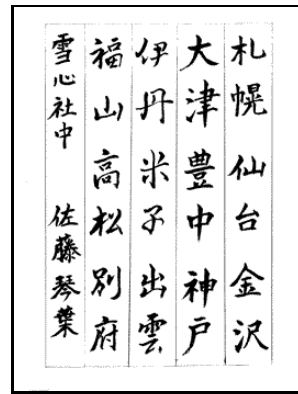 札幌仙台金沢
大津豊中神戸
伊丹米子出雲
福山高松別府
雪心社中 佐藤琴葉